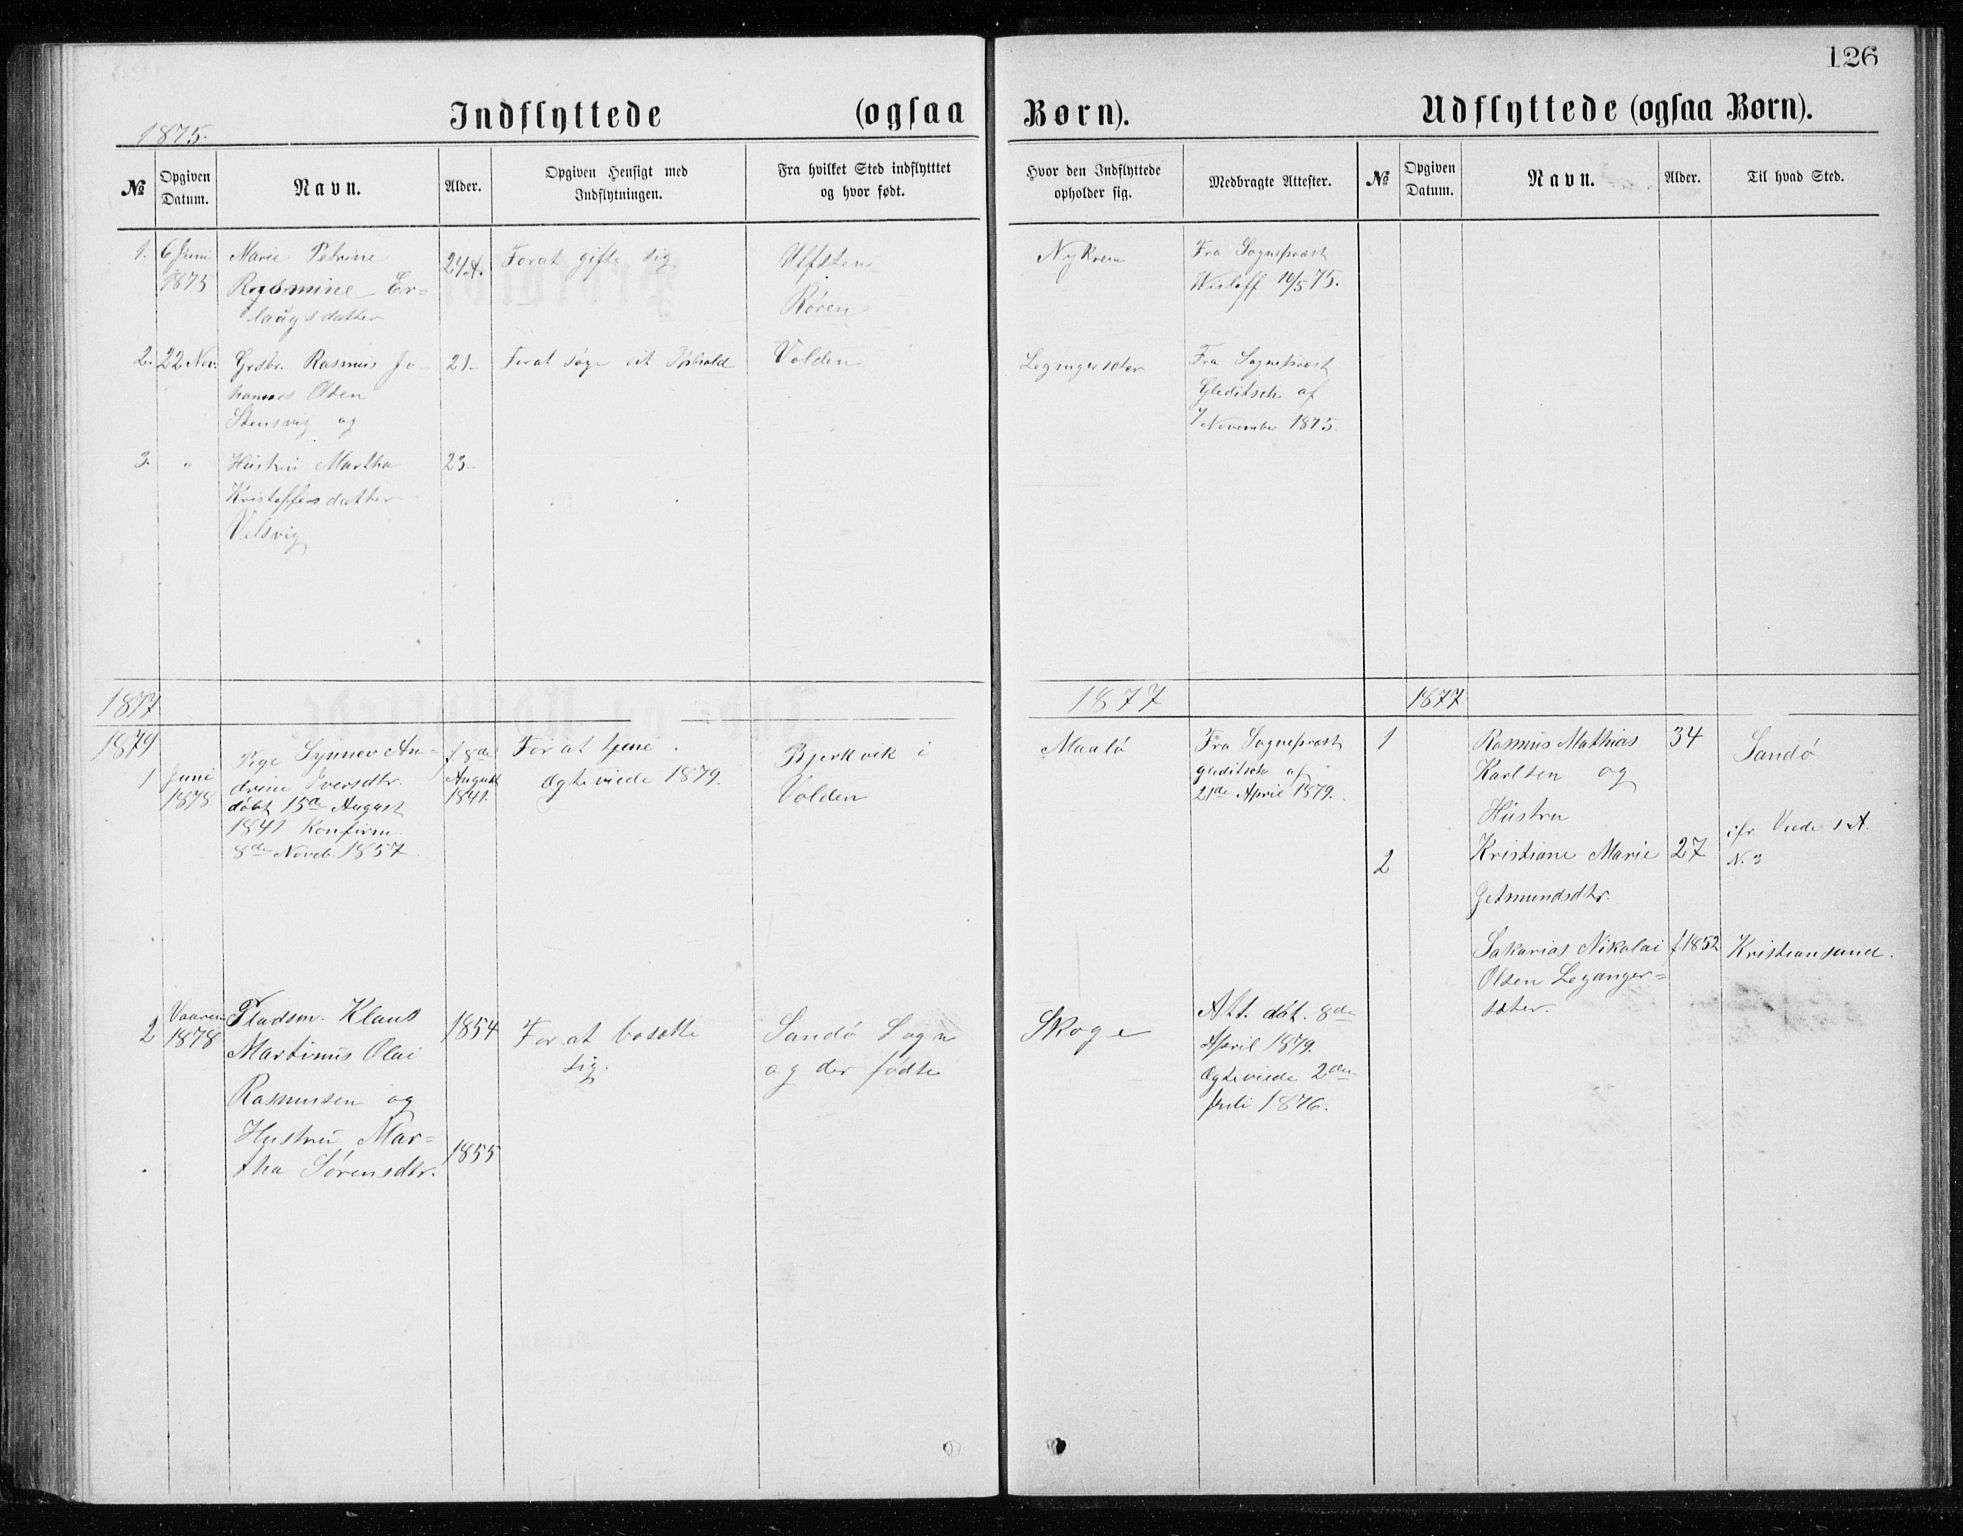 126
Indflyttede (ogsaa Børn).
Udflyttede (ogsaa Børn).
1875.
№ Opgiven Datum. Navn. Alder. Opgiven Hensigt med Indflytningen. Fra hvilket Sted indflytttet og hvor født. Hvor den Indflyttede opholder sig. Medbragte Attester.
№ Opgiven Datum. Navn. Alder. Til hvad Sted.
1. 6 Juni Marie Petrine 24 A. For at gifte sig Ulfsten Nykrem Fra Sogneprest
1875 Er= Røren 10/5 75.
laugsdatter
2. 22 Nov. Rasmus Jo- 21- For at søge sit Ophold Volden Fra Sogneprest
hannes Olsen Gleditsch af
Stensvig og November 1875.
3. " Hustru Martha 23-
Kristoffersdatter
Velsvig
1877
1877
1877
1879
1 Juni 1878 Pige Synnev An- f. 8de For at tjene. Bjerkvik i Maalø Fra Sogneprest
drine Iversdtr. August Ægteviede 1879. Volden Gleditsch af
døbt 15de August 1841. 21de April 1879.
1841 Konfirm.
8de Novob. 1857.
2 Vaaren 1878 Pladsm. Klaus 1854 For at bosætte Sandø Sogn Skoge Att. dat. 8de
Martinus Olai sig. og der fødte April 1879.
Rasmussen og Ægteviede 2den
Hustru Mar= 1855 Juli 1876.
tha Sørensdtr.
1 Rasmus Mathias 34 Sandø
Karlsen og
Hustru
2 Kristiane Marie 27 N. 3
Getmundsdtr.
Sakarias Nikolai f. 1852 Kristiansund.
Olsen Leganger=
sæter.